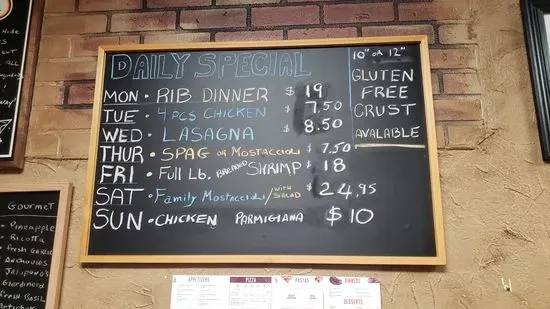 DAILY SPECIAL
MON · RIB DINNER $19
TUE · 4 PCS CHICKEN $7.50
WED · LASAGNA $8.50
THUR · SPAG OR MOSTACCIOLI $7.50
FRI · FULL LB. BREADED SHRIMP $18
SAT · FAMILY MOSTACCIOLI / WITH SALAD $24.95
SUN · CHICKEN PARMIGIANA $10
10" OR 12"
GLUTEN
FREE
CRUST
AVALABLE
GOURMET
PINEAPPLE
RICOTTA
FRESH GARLIC
ANCHOVIES
JALAPENO'S
GIARDINIERA
FRESH BASIL
APPETIZERS
PIZZA
PASTAS
DINNERS
DESSERTS